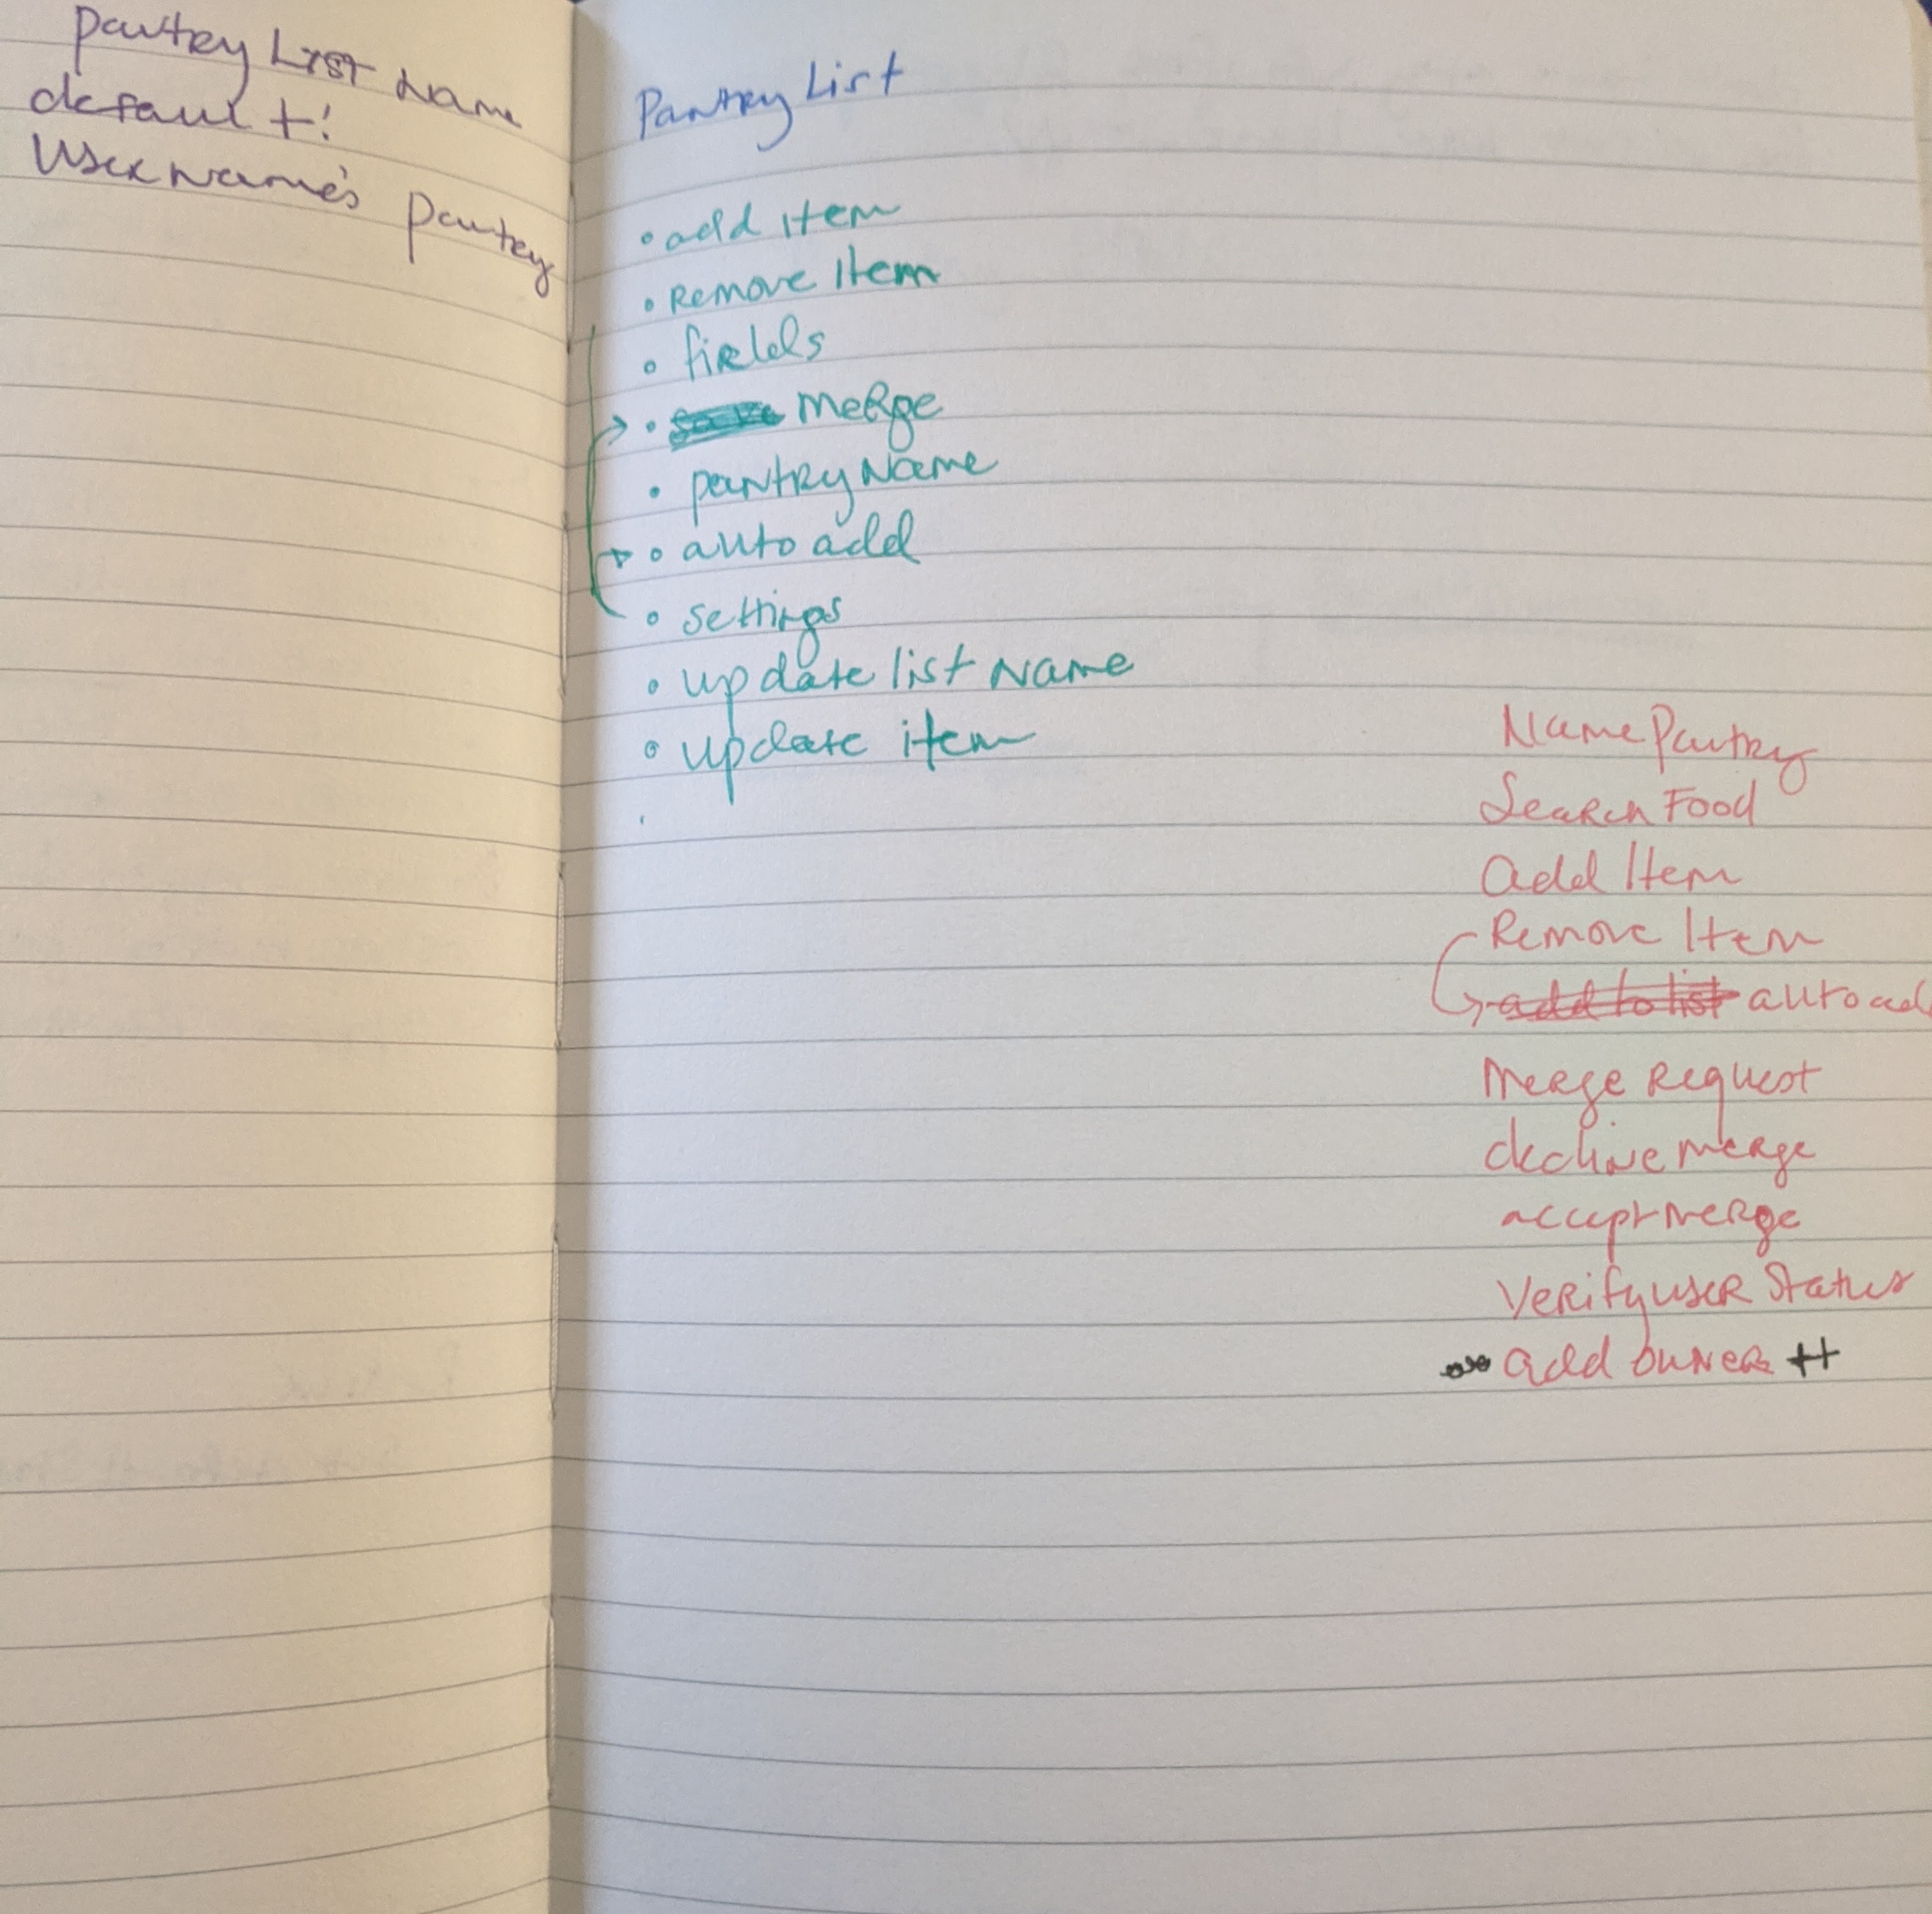 Pantry List Name
default!
UserName's Pantry
Pantry List
• add item
• Remove Item
• fields
• save merge
• pantry Name
• auto add
• settings
• update list Name
• update item
Name Pantry
Search Food
add Item
Remove Item
add to list auto ad
Merge Request
decline merge
accept merge
Verify user Status
add owner ++